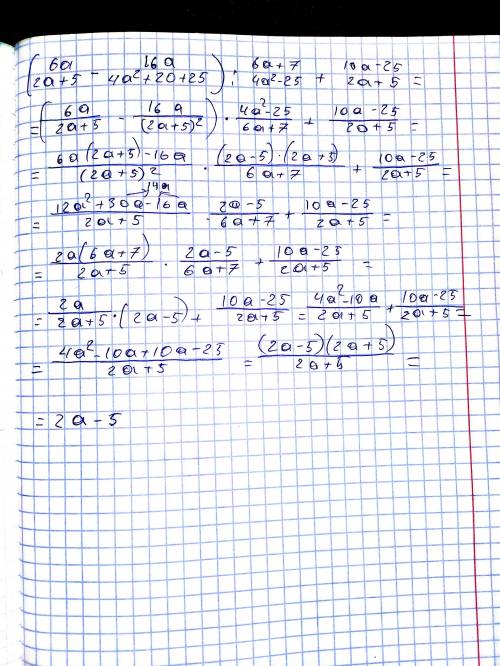 (6a/(2a+5) - 16a/(4a²+20+25)) : (6a+7)/(4a²-25) + (10a-25)/(2a+5) =
= (6a/(2a+5) - 16a/(2a+5)²) · (4a²-25)/(6a+7) + (10a-25)/(2a+5) =
= (6a(2a+5)-16a)/(2a+5)² · ((2a-5)·(2a+5))/(6a+7) + (10a-25)/(2a+5) =
14a
= (12a²+30a-16a)/(2a+5) · (2a-5)/(6a+7) + (10a-25)/(2a+5) =
= 2a(6a+7)/(2a+5) · (2a-5)/(6a+7) + (10a-25)/(2a+5) =
= 2a/(2a+5) · (2a-5) + (10a-25)/(2a+5) = (4a²-10a)/(2a+5) + (10a-25)/(2a+5) =
= (4a²-10a+10a-25)/(2a+5) = ((2a-5)(2a+5))/(2a+5) =
= 2a-5